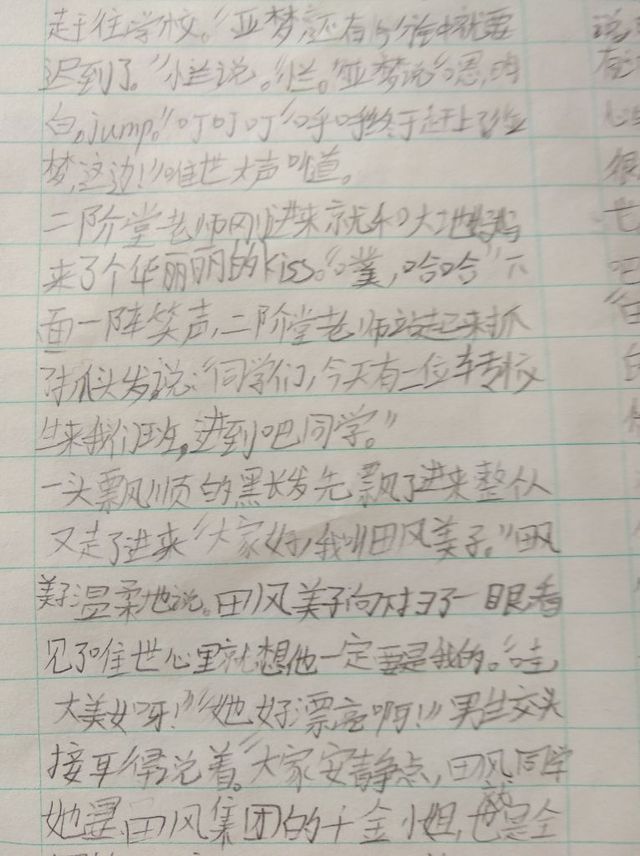 赶往学校。“亚梦还有5分钟就要
迟到了。”小兰说。“兰。”亚梦说“恩,明
白。jump。”“叮叮叮”“呼呼终于赶上了”“亚
梦,这边!”唯世大声叫道。
二阶堂老师刚进来就和大地妈妈
来了个华丽丽的kiss。“噗,哈哈”下
面一阵笑声,二阶堂老师站起来抓
抓头发说:“同学们,今天有一位转校
生来我们班,进到吧同学。”
一头飘顺的黑长发先飘了进来整个人
又走了进来“大家好,我叫田风美子。”田风
美子温柔地说。田风美子向对扫了一眼看
见了唯世心里就想他一定要是我的。“哇,
大美女呀!”“她好漂亮啊!”男生交头
接耳得说着。“大家安静点,田风同学
她是田风集团的千金小姐,也就是全